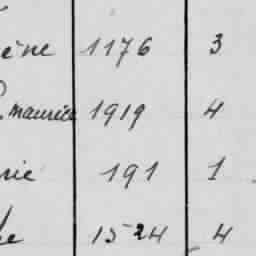 ène 1176 3
maurice 1919 4
rie 191 1
1524 4